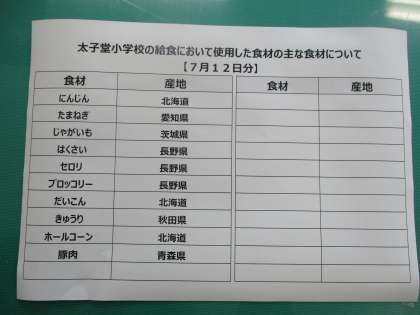 太子堂小学校の給食において使用した食材の主な食材について
【７月１２日分】
食材 産地 食材 産地
にんじん 北海道
たまねぎ 愛知県
じゃがいも 茨城県
はくさい 長野県
セロリ 長野県
ブロッコリー 長野県
だいこん 北海道
きゅうり 秋田県
ホールコーン 北海道
豚肉 青森県